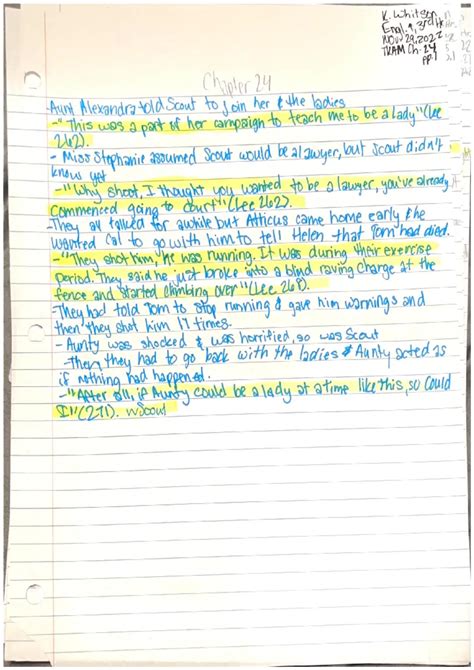 K. Whitson
Engl. 9, 3rd Hr.
Nov 29, 2022
TKAM Ch. 24
pp. 1
Chapter 24
-Aunt Alexandra told Scout to join her & the ladies
-"This was a part of her campaign to teach me to be a lady" (Lee
262).
- Miss Stephanie assumed Scout would be a lawyer, but Scout didn't
know yet
-"Why shoot, I thought you wanted to be a lawyer, you've already
commenced going to court" (Lee 262).
-They all talked for awhile but Atticus came home early & he
wanted Cal to go with him to tell Helen that Tom had died.
-"They shot him, he was running. It was during their exercise
period. They said he just broke into a blind raving charge at the
fence and started climbing over" (Lee 268).
-They had told Tom to stop running & gave him warnings and
then they shot him 17 times.
- Aunty was shocked & was horrified, so was Scout
-Then, they had to go back with the ladies & Aunty acted as
if nothing had happened.
-"After all, if Aunty could be a lady at a time like this, so could
I" (271). Scout